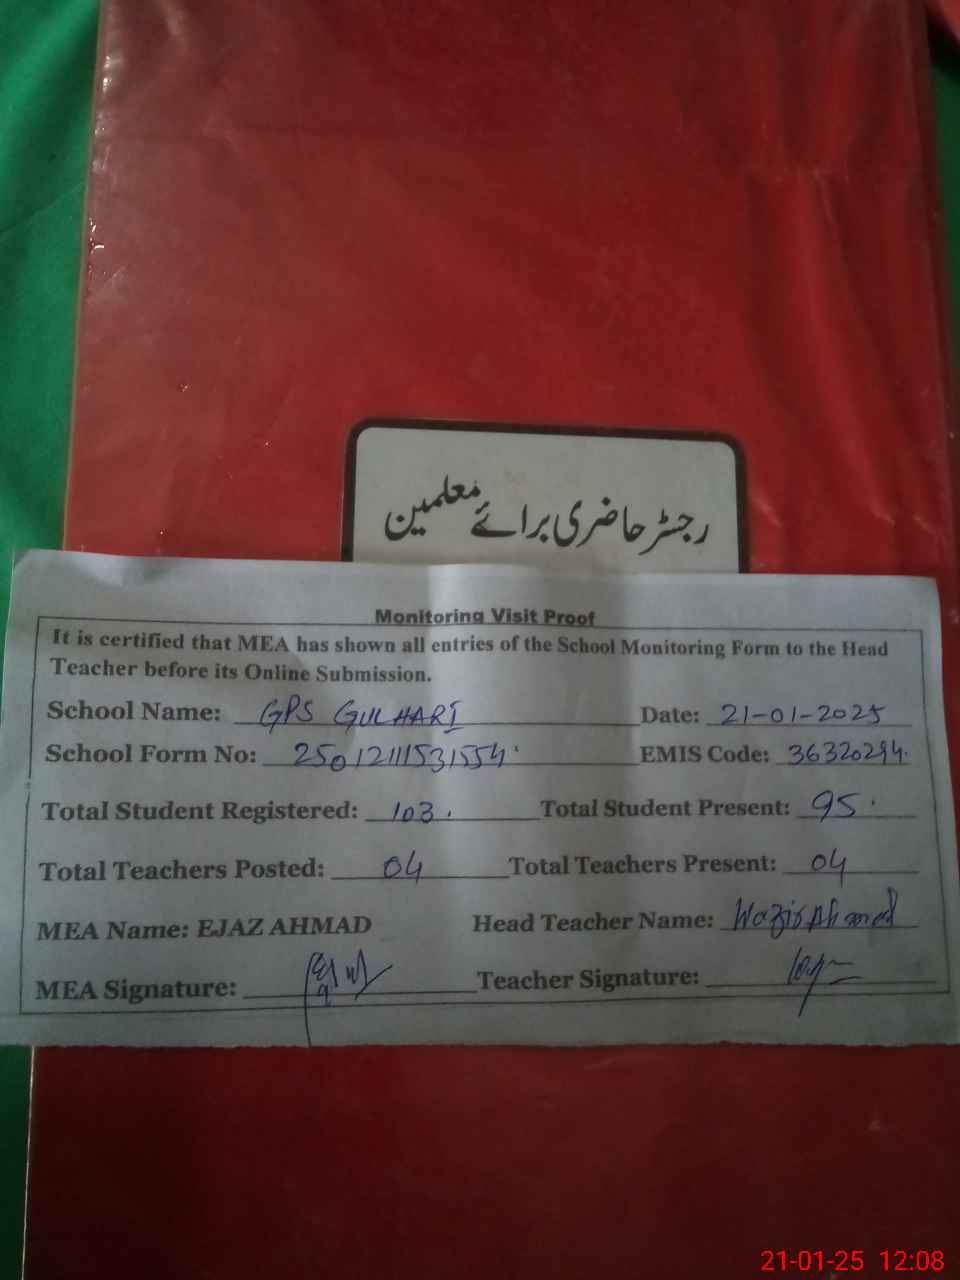 رجسٹر حاضری برائے معلمین
Monitoring Visit Proof
It is certified that MEA has shown all entries of the School Monitoring Form to the Head
Teacher before its Online Submission.
School Name: GPS GULHARI Date: 21-01-2025
School Form No: 2501211531554 EMIS Code: 36320294
Total Student Registered: 103. Total Student Present: 95.
Total Teachers Posted: 04 Total Teachers Present: 04
MEA Name: EJAZ AHMAD Head Teacher Name: Wazir Ahmad
MEA Signature: Teacher Signature:
21-01-25 12:08